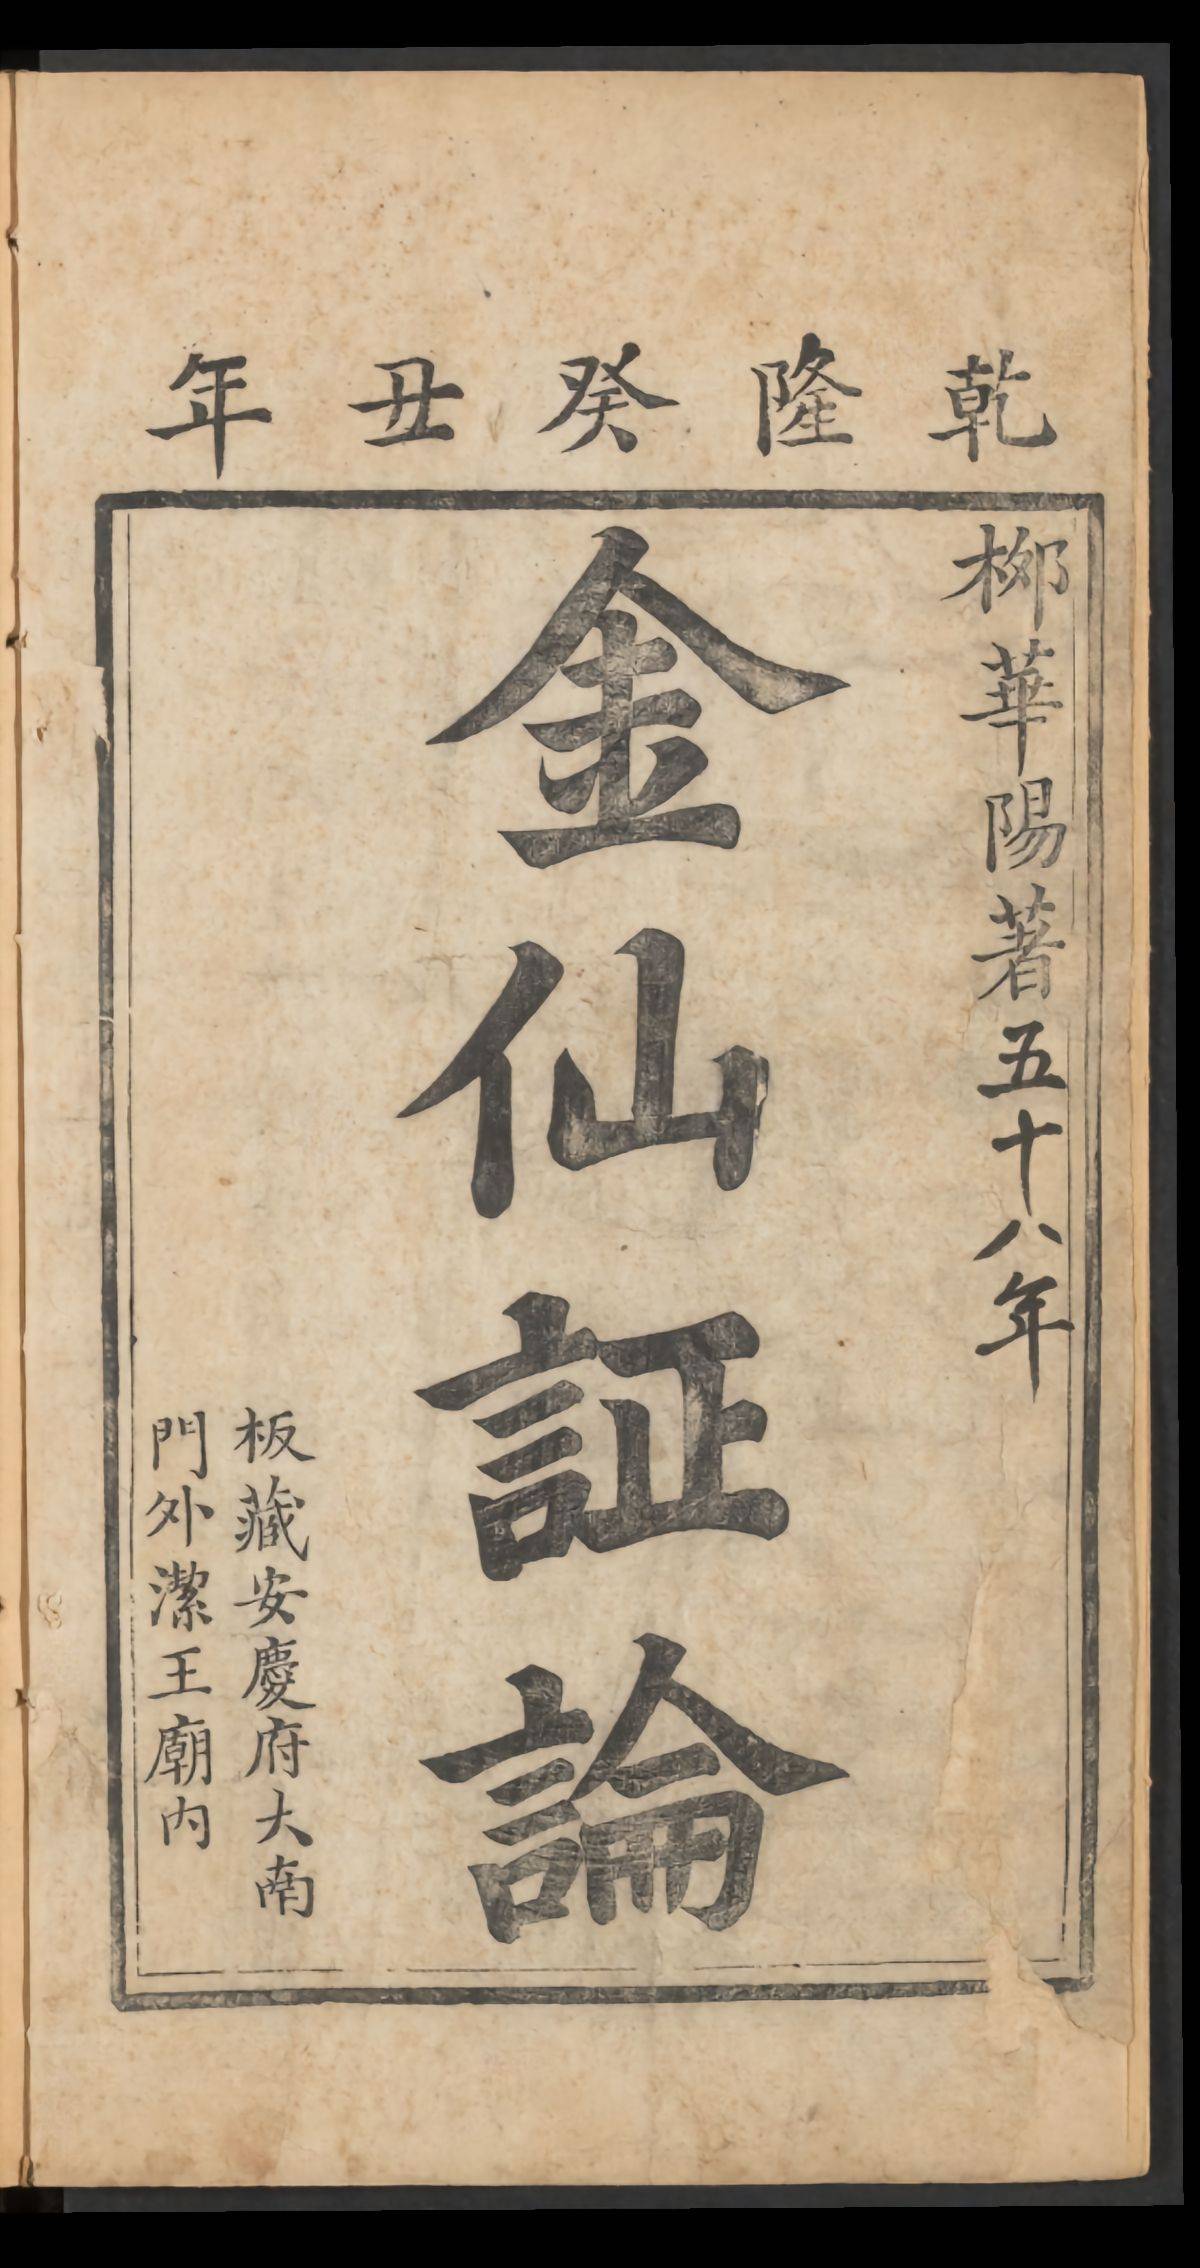 乾隆癸丑年
栁華陽著五十八年
金仙証論
板藏安慶府大南
門外潔王廟内